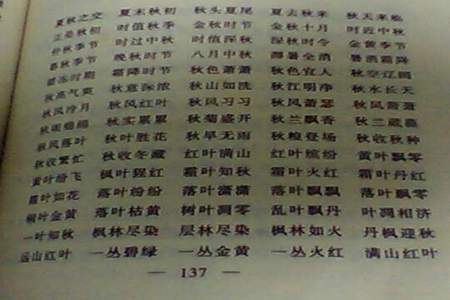 夏秋之交 夏末秋初 秋头夏尾 夏去秋来 秋天来临
正是秋初 时值秋季 金秋时节 金秋十月 时近中秋
仲秋季节 时过中秋 时值深秋 深秋时令 金黄季节
暮秋季节 晚秋时节 八月中秋 溽暑全消 暑消霜降
初冻时期 霜降时节 秋色萧萧 秋色宜人 秋空辽阔
秋高气爽 秋意深浓 秋山如洗 秋江明净 秋水长天
秋风冷月 秋风红叶 秋风习习 秋风萧瑟 秋风萧萧
秋雨绵绵 秋实累累 秋菊盛开 秋兰飘香 秋兰葳蕤
秋风落叶 秋叶胜花 秋旱无雨 秋粮登场 秋收秋种
秋收繁忙 秋收冬藏 红叶满山 红叶缤纷 黄叶飘零
黄叶纷飞 枫叶猩红 霜叶知秋 霜叶火红 霜叶丹红
霜叶如花 落叶纷纷 落叶潇潇 落叶飘飘 落叶飘零
桐叶金黄 落叶枯黄 树叶凋零 乱叶飘丹 叶凋相济
一叶知秋 枫林尽染 层林尽染 枫林如火 丹枫迎秋
远山红叶 一丛碧绿 一丛金黄 一丛火红 满山红叶
— 137 —